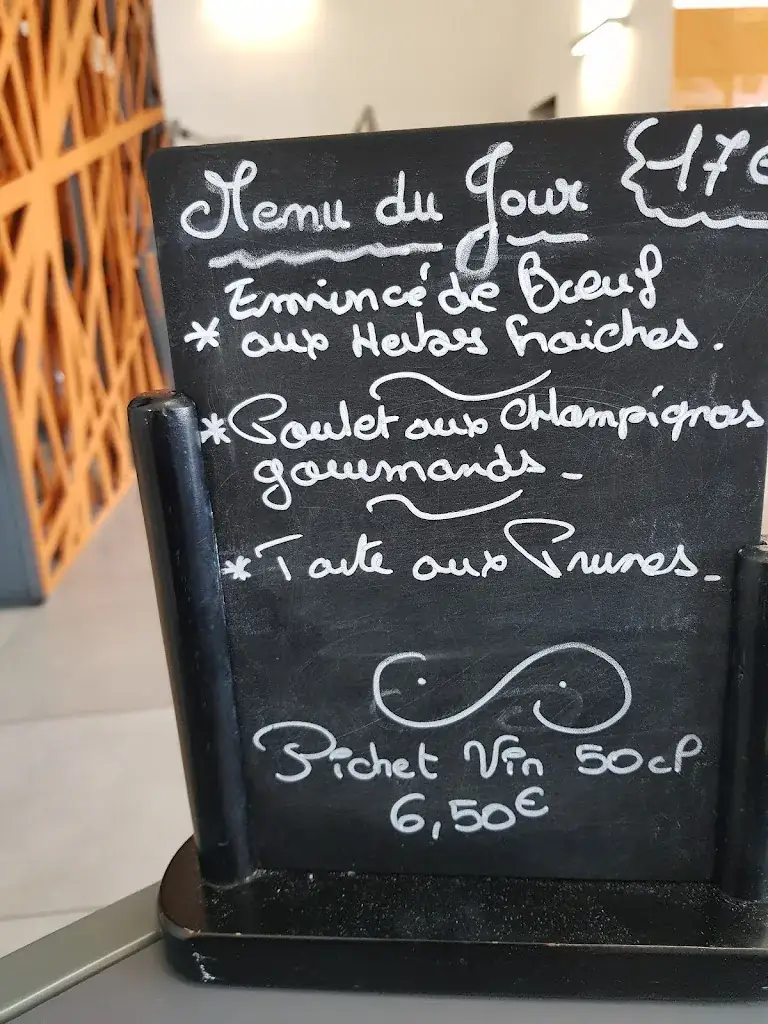 Menu du Jour 17€
Emincé de Bœuf
* aux Herbes fraiches.
* Poulet aux Champignons
gourmands -
* Tarte aux Prunes -
Pichet Vin 50cl
6,50€